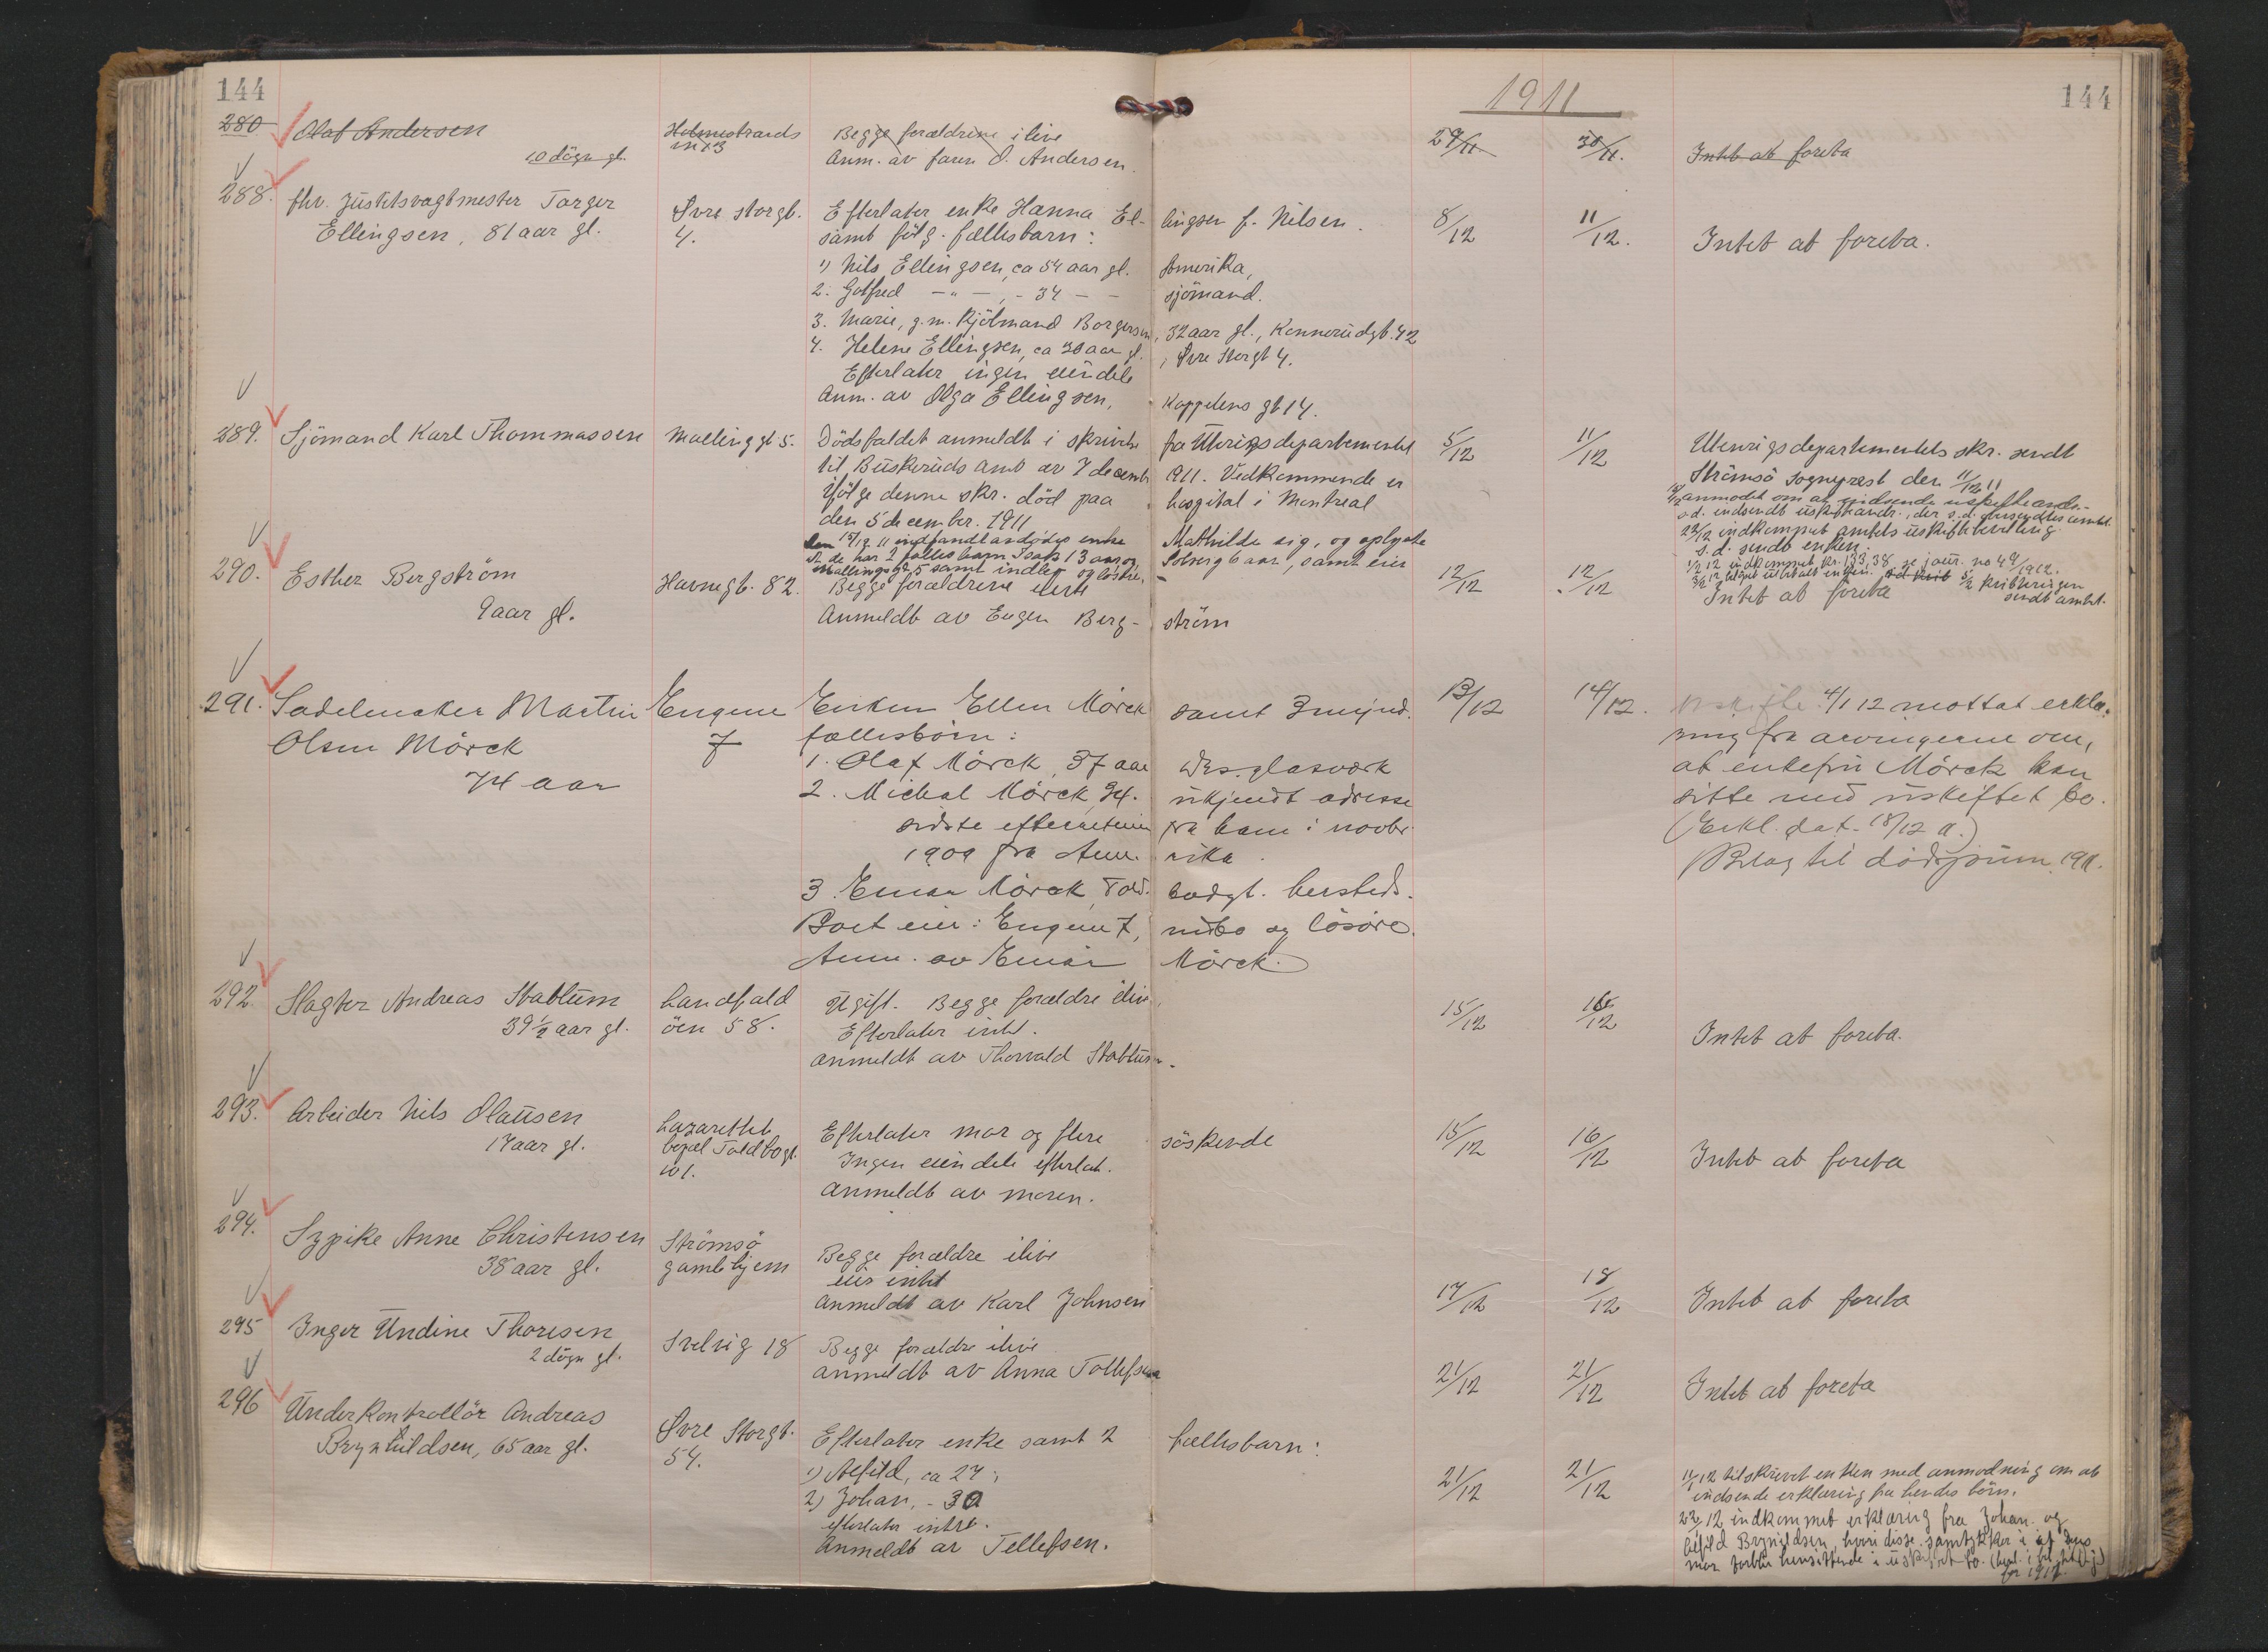 144
1911
144
280 Olaf Andersen Holmestrands Begge forældrene ilive 29/11 30/11. Intet at foreta
10 døgn gl. Anm. av faren O. Andersen.
288. fhv. Justitsvagtmester Torger Øvre storgt. Efterlater enke Hanna El- lingsen f. Nilsen. 8/12 11/12. Intet at foreta.
Ellingsen, 81 aar gl. 4. samt følg. fællesbarn:
1) Nils Ellingsen, ca 54 aar gl. Amerika,
2. Gotfred — " — , - 34 — — sjömand.
3. Marie, g.m. Kjölmand Borgersen, 32 aar gl., Konnerudgt. 42
4. Helene Ellingsen, ca 30 aar gl. , Øvre Storgt 4.
Efterlater ingen eiendele
Anm. av Olga Ellingsen, Kappelens gt 14.
289. Sjömand Karl Thommassen Mallinggt 5. Dödsfaldet anmeldt i skrivelse fra Utenrigsdepartementet 5/12 11/12 Utenrigsdepartementets skr. sendt
til Buskeruds amt av 7 decemb 1911. Vedkommende er Strömsö Sogneprest den 11/12 11
ifölge denne skr. död paa hospital i Montreal
den 5 december. 1911
Mathilde sig, og oplyste
at de har 2 fælles barn Isak 13 aar og Solveig 6 aar, samt eier
Mallingsgt. 5 samt indbo og lösöre.
22/12 indkommet amtets uskiftebevilling
s.d. sendt enken.
sendt amtet.
290. Esther Bergström Havnegt. 82. Begge forældrene ilive 12/12 12/12 Intet at foreta
9 aar gl. Anmeldt av Eugen Berg- ström
291. Sadelmaker Martin Engene Enken Ellen Mörck samt 3 mynd. 13/12 14/12. Uskifte 4/1 12 mottat erklæ-
Olsen Mörck 7 fællesbörn: ring fra arvingerne om,
74 aar 1. Olaf Mörck, 37 aar Drs. glasværk at enkefru Mörck kan
2. Michal Mörck, 34. ukjendt adresse sitte med uskiftet bo.
sidste efterretning fra ham i novbr. (Erkl. dat. 18/12 11.)
1909 fra Ame- rika. Bilag til dödsjourn. 1911.
3 Einar Mörck, Told- bodgt. hersteds.
Boet eier: Engene 7, indbo og lösöre.
Anm. av Einar Mörck.
292. Slagter Andreas Stabtum Landfald Ugift. Begge forældre ilive, 15/12 16/12
39 1/2 aar gl. öen 58. Efterlater intet. Intet at foreta.
anmeldt av Thorvald Stabtum.
293. Arbeider Nils Olausen Lazarettet Efterlater mor og flere söskende 15/12 16/12 Intet at foreta
17 aar gl. Toldbogt. Ingen eiendele efterlat.
101. Anmeldt av moren.
294. Sypike Anne Christensen Strömsö Begge forældre ilive
38 aar gl. gamlehjem eier intet
Anmeldt av Karl Johnsen 17/12 18/12 Intet at foreta
295 Inger Undine Thoresen Svelvig 18 Begge forældre ilive
2 døgn gl. anmeldt av Anna Tollefsen 21/12 21/12 Intet at foreta
296 Underkontrollör Andreas Øvre Storgt. Efterlater enke samt 2 fællesbarn:
Brynhildsen, 65 aar gl. 54. 1) Alfild, ca 27, 21/12 21/12 11/12 tilskrevet enken med anmodning om at
2) Johan, - 30 indsende erklæring fra hendes börn.
efterlater intet. 22/12 indkommet erklæring fra Johan og
Anmeldt av Tellefsen. Alfild Brynildsen, hvori disse samtykker i at deres
mor forblir hensittende i uskiftet bo.
for 1912.